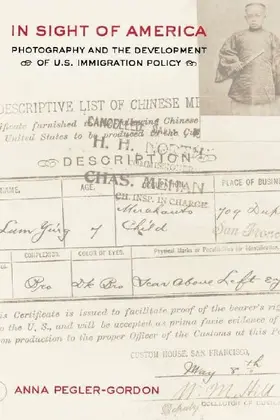 IN SIGHT OF AMERICA
PHOTOGRAPHY AND THE DEVELOPMENT
OF U.S. IMMIGRATION POLICY
DESCRIPTIVE LIST OF CHINESE
CANCELLED
United States to be produced to the
H. H. NORTH
DESCRIPTION
CHAS. MEHAN
CH. INSP. IN CHARGE
NAME. AGE. PLACE OF BUSI
Lum Yung 7 Child 709 Dup
San Franc
COMPLEXION. COLOR OF EYES. Physical Marks or Peculiarities for Identification.
Bro Dk Bro Scar above left ey
This Certificate is issued to facilitate proof of the bearer's
the U. S., and will be accepted as prima facie evidence of
on production to the proper Officer of the Customs at this
CUSTOM HOUSE, SAN FRANCISCO,
May 8th
ANNA PEGLER-GORDON
Deputy COLLECTOR OF